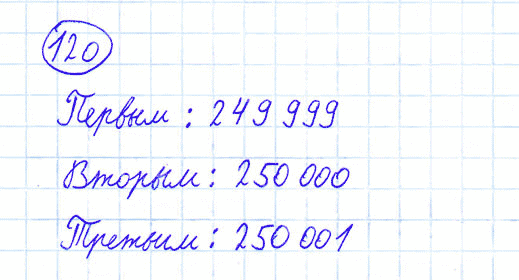 120
Первым : 249 999
Вторым : 250 000
Третьим : 250 001